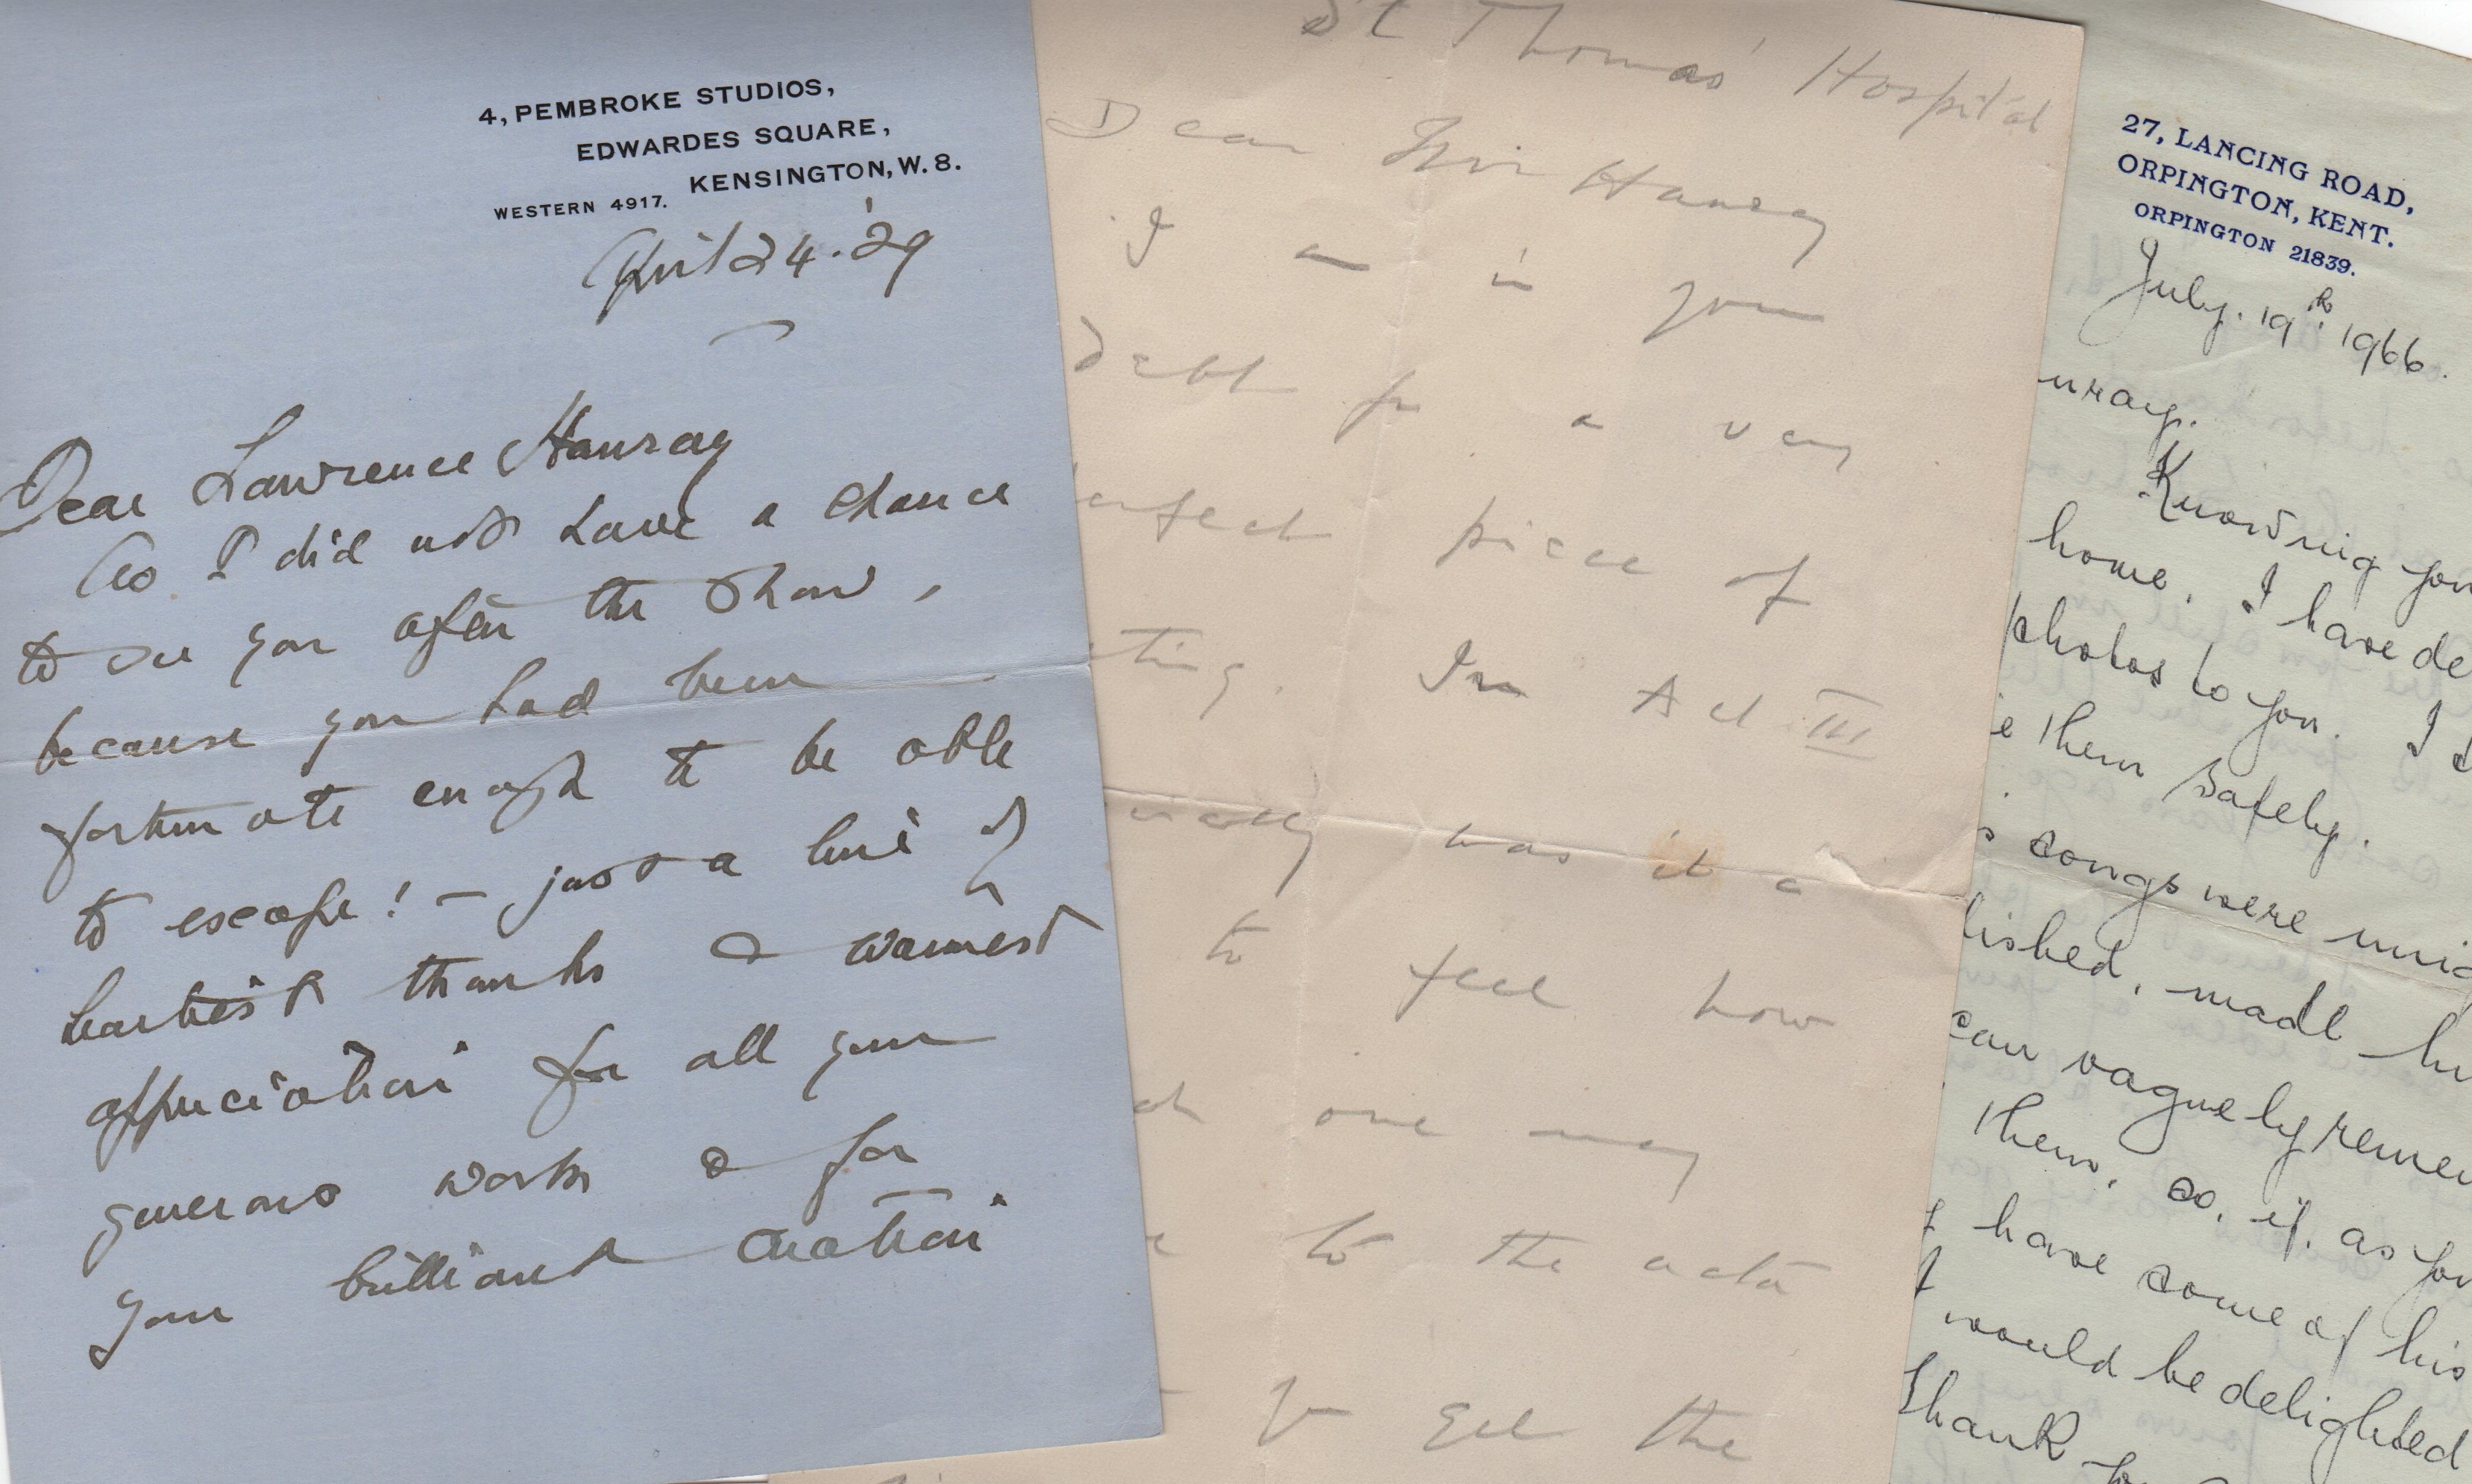 4, PEMBROKE STUDIOS,
EDWARDES SQUARE,
KENSINGTON, W. 8.
WESTERN 4917.
April 24. '29
Dear Lawrence Hanray
As I did not have a chance
to see you after the show,
because you had been
fortunate enough to be able
to escape! – just a line of
heartiest thanks & warmest
appreciation for all your
generous work & for
your brilliant creation
St Thomas' Hospital
Dear Mr Hanray
I am in your
debt for a very
perfect piece of
ting. In Act III
was it a
to feel how
one may
to the actor
get the
27, LANCING ROAD,
ORPINGTON, KENT.
ORPINGTON 21839.
July. 19th. 1966.
nray.
Knowing you
home, I have de
photos to you. I
e them safely.
songs were
lished, made
can vaguely remem
them, so, if, as you
have some of his
would be delighted
Thank